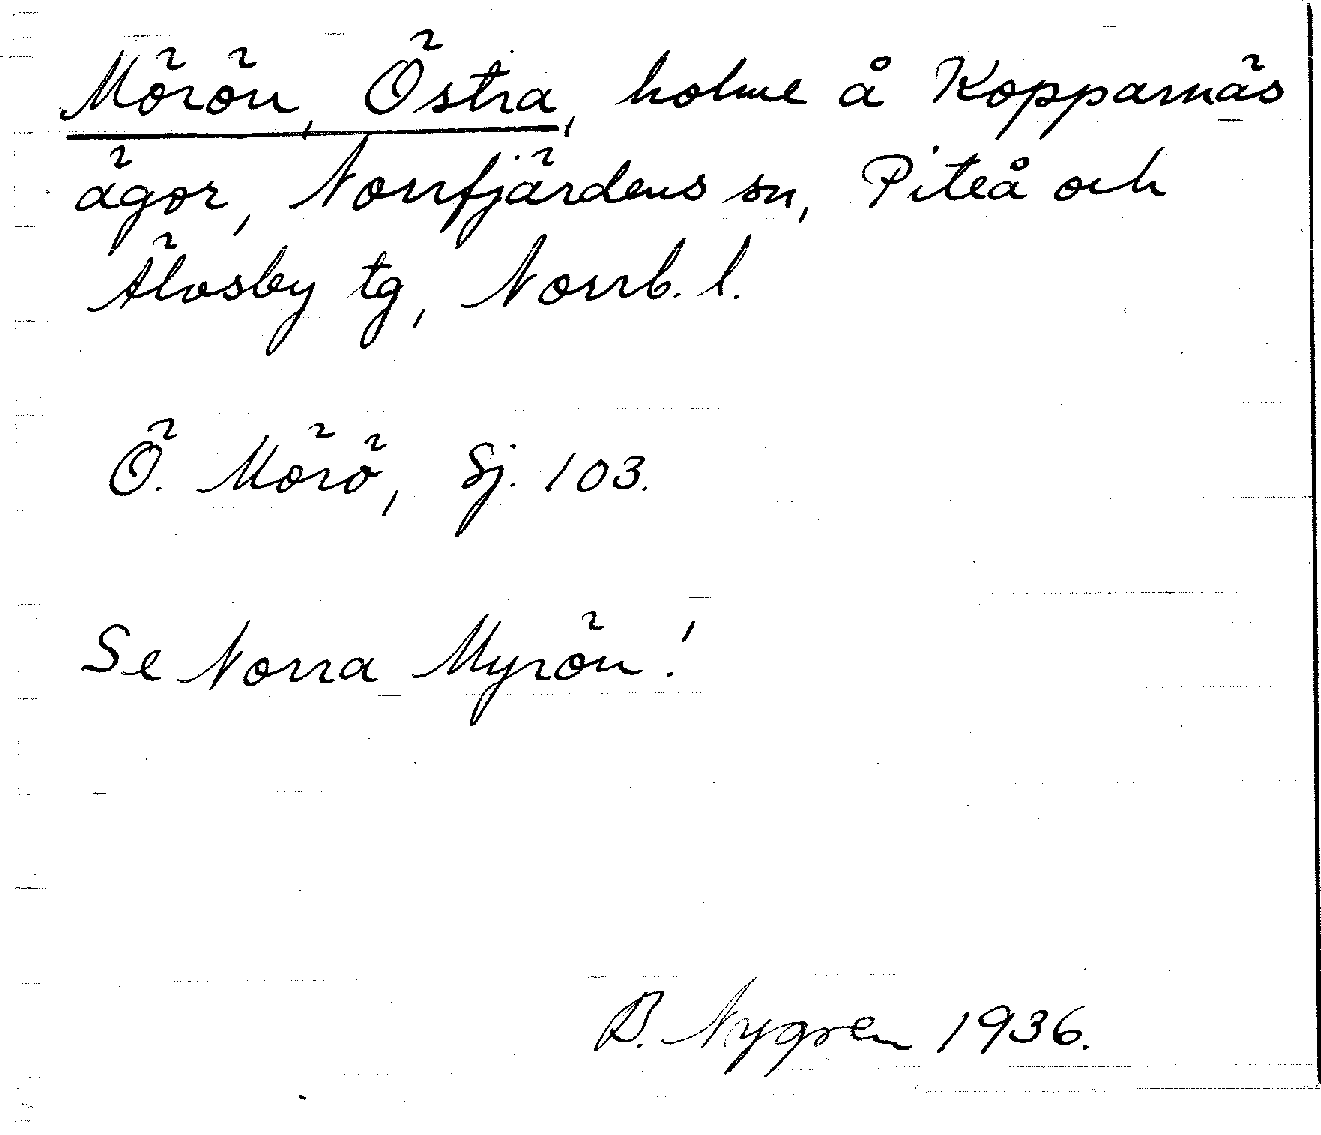 Mörön, Östra, holme å Kopparnäs
ägor, Norrfjärdens sn, Piteå och
Älvsby tg, Norrb. l.
Ö. Mörö, Sj. 103.
Se Norra Myrön!
B. Nygren 1936.